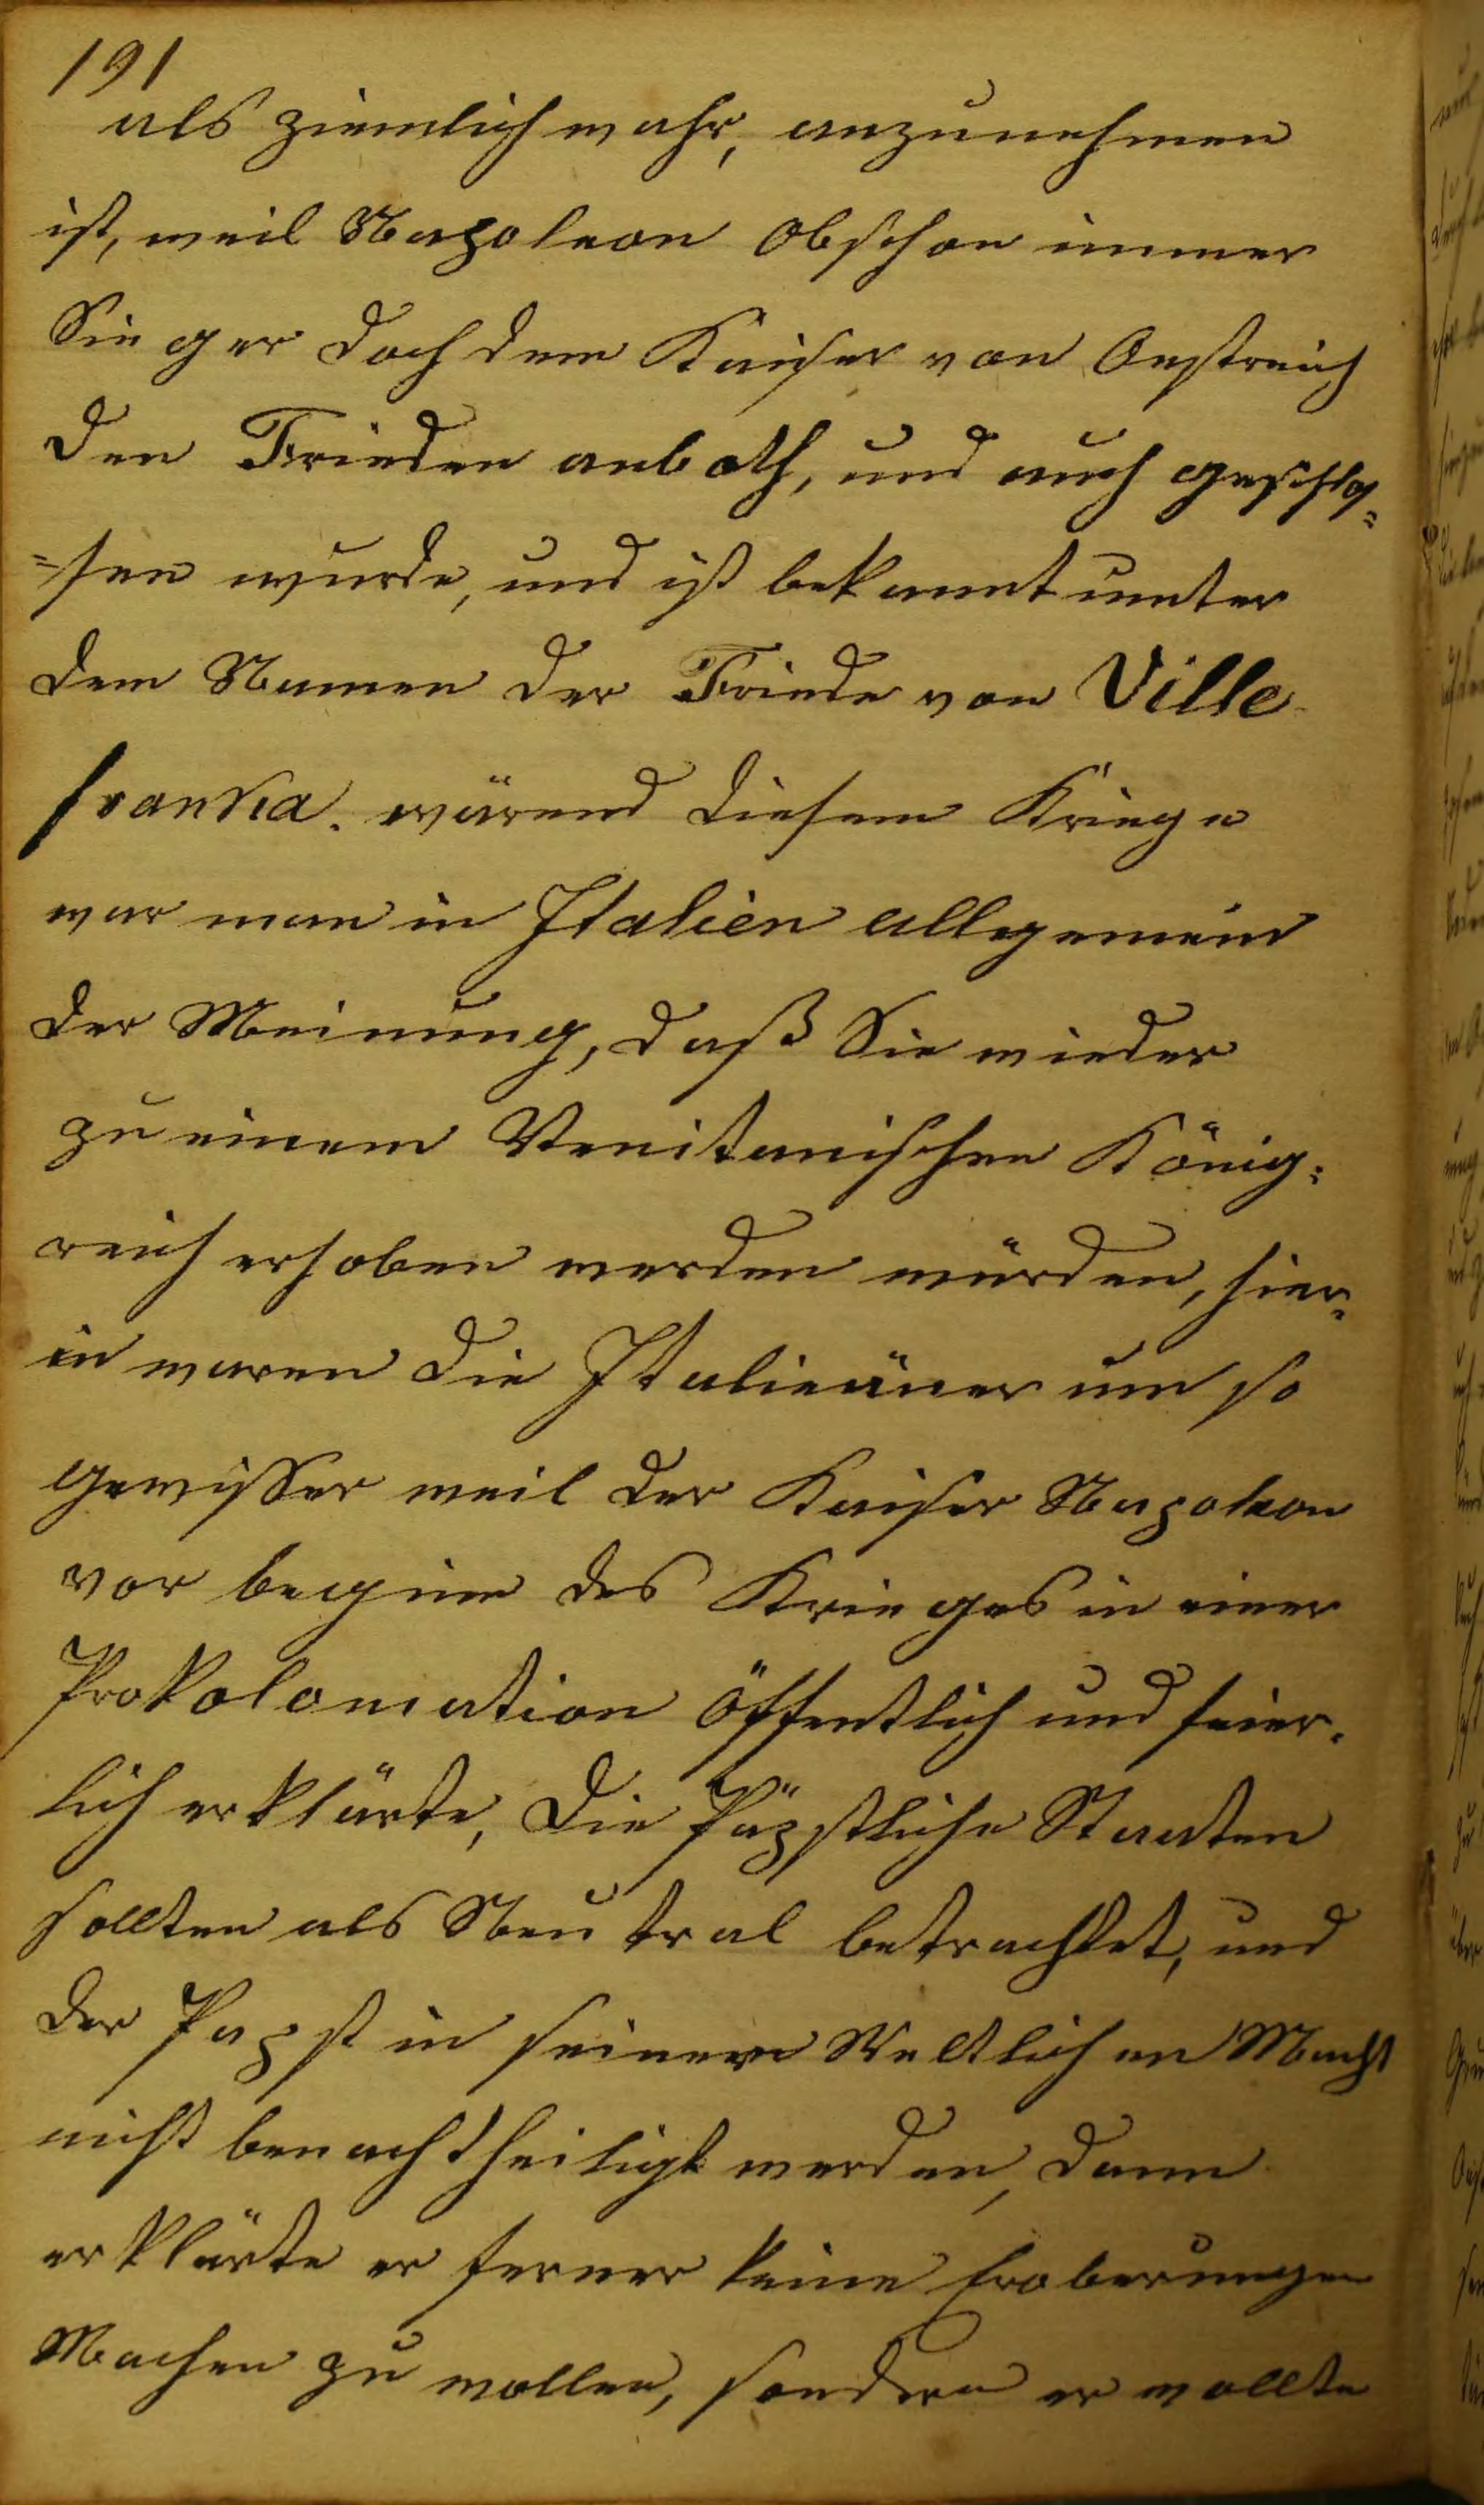 191
als ziemlich wahr, anzunehmen
ist, weil Napoleon obschon immer
Sieger doch dem Kaiser von Oestreich
den Frieden anboth, und auch geschlos=
=sen wurde, und ist bekannt unter
dem Namen der Friede von Ville
franka. wärend diesem Kriege
war man in Italien allgemein
der Meinung, daß Sie wieder
zu einem Venitanischen König=
reich erhoben werden würden, hier=
in waren die Italieäner um so
gewisser weil der Kaiser Napoleon
vor beginn des Krieges in einer
Prokolomation öffentlich und feier=
lich erklärte, die Päpstliche Staaten
sollten als Neutral betrachtet, und
der Papst in seinem Weltlichen Macht
nicht benachtheiligt werden, dann
erklärte er ferner keine Eroberungen
Machen zu wollen, sondern er wollte